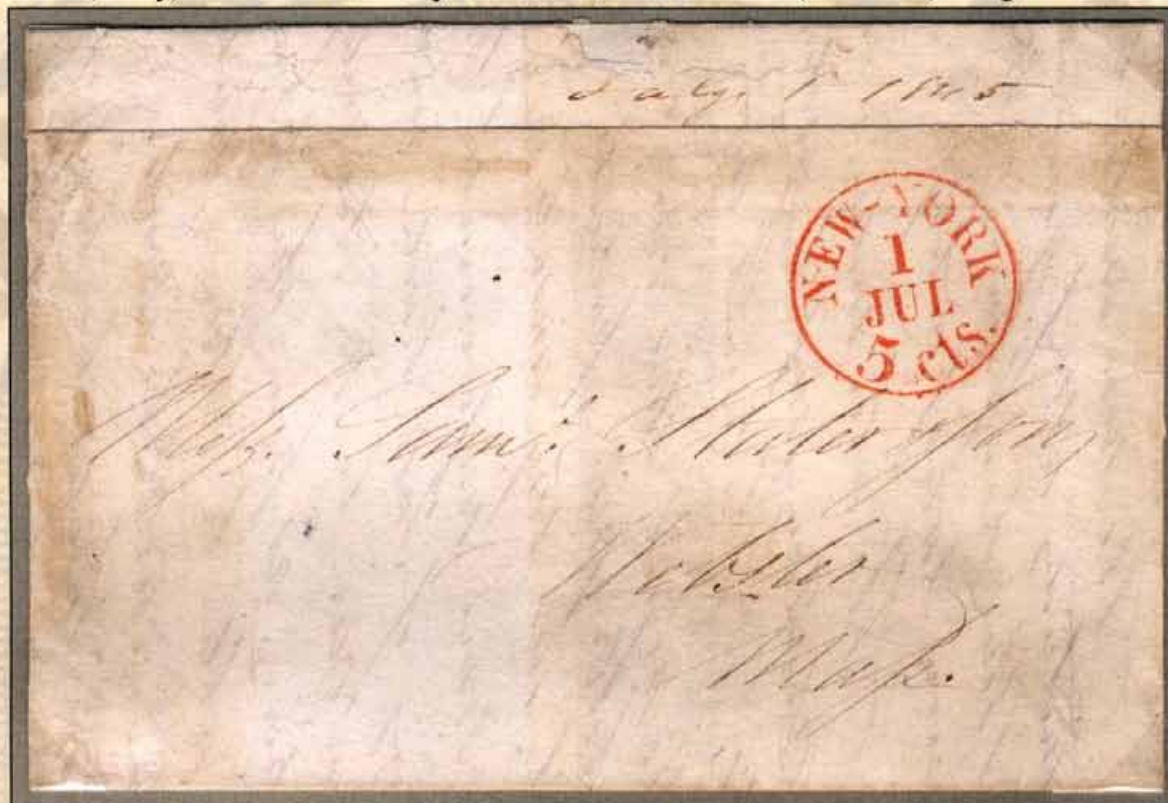 July 1 1845
NEW-YORK
1
JUL
5 cts.
Mess. Saml. Slater & Sons,
Webster
Mass.